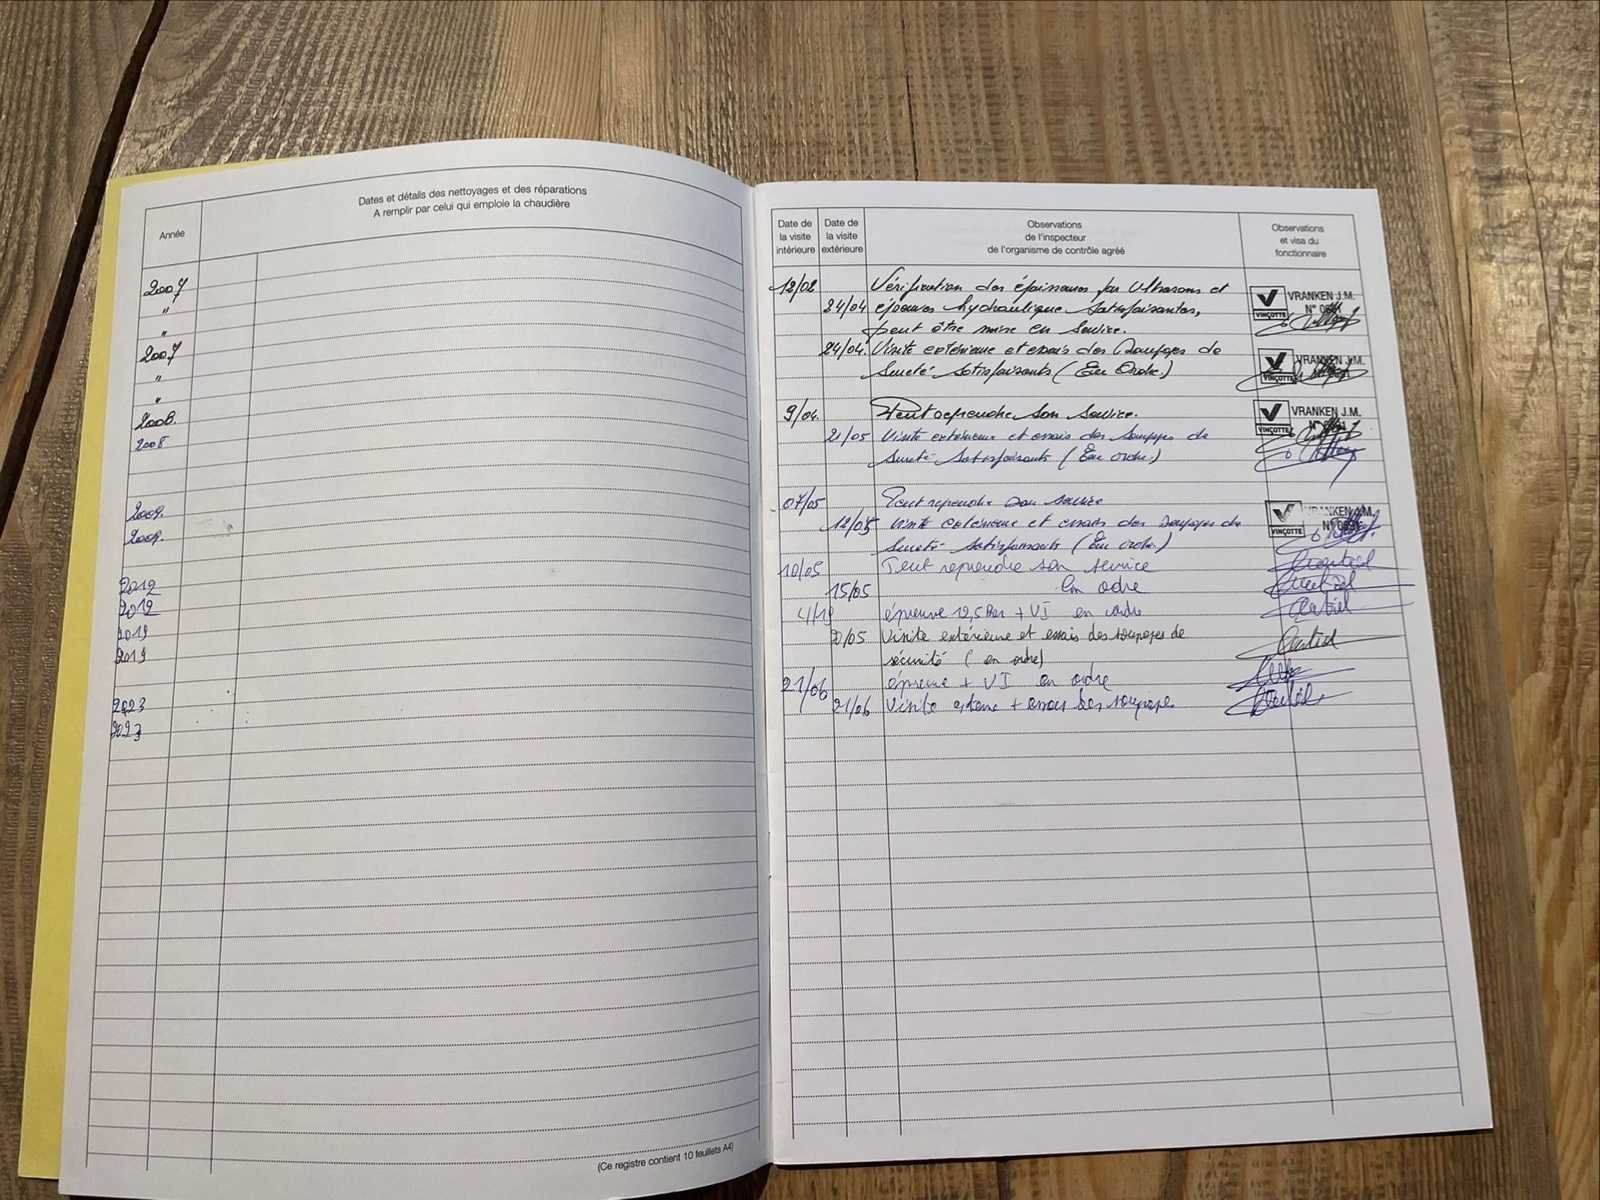 Dates et détails des nettoyages et des réparations
A remplir par celui qui emploie la chaudière
Année
2007
"
"
2007
"
"
2008
2008
2009.
2009.
2012
2012
2019
2019
2023
2023
(Ce registre contient 10 feuillets A4)
Date de la visite intérieure
Date de la visite extérieure
Observations
de l'inspecteur
de l'organisme de contrôle agréé
Observations
et visa du
fonctionnaire
12/02 Vérification des épaisseurs par Ultrasons et
24/04 épreuve hydraulique satisfaisantes,
peut être mise en service.
VINÇOTTE VRANKEN J.M.
24/04. Visite extérieure et essais des Soupapes de
Sureté Satisfaisants (En Ordre.)
VINÇOTTE VRANKEN J.M.
9/04. Peut reprendre son service.
VINÇOTTE VRANKEN J.M.
21/05 Visite extérieure et essais des soupapes de
Sureté Satisfaisants (En ordre.)
07/05 Peut reprendre son service
VINÇOTTE VRANKEN J.M.
12/05 Visite extérieure et essais des soupapes de
Sureté satisfaisants (En ordre)
10/05 Peut reprendre son service
15/05 En ordre
4/19 épreuve 12,5 Bar + VI en ordre
20/05 Visite extérieure et essais des soupapes de
sécurité (en ordre)
21/06 épreuve + VI en ordre
21/06 Visite externe + essais des soupapes